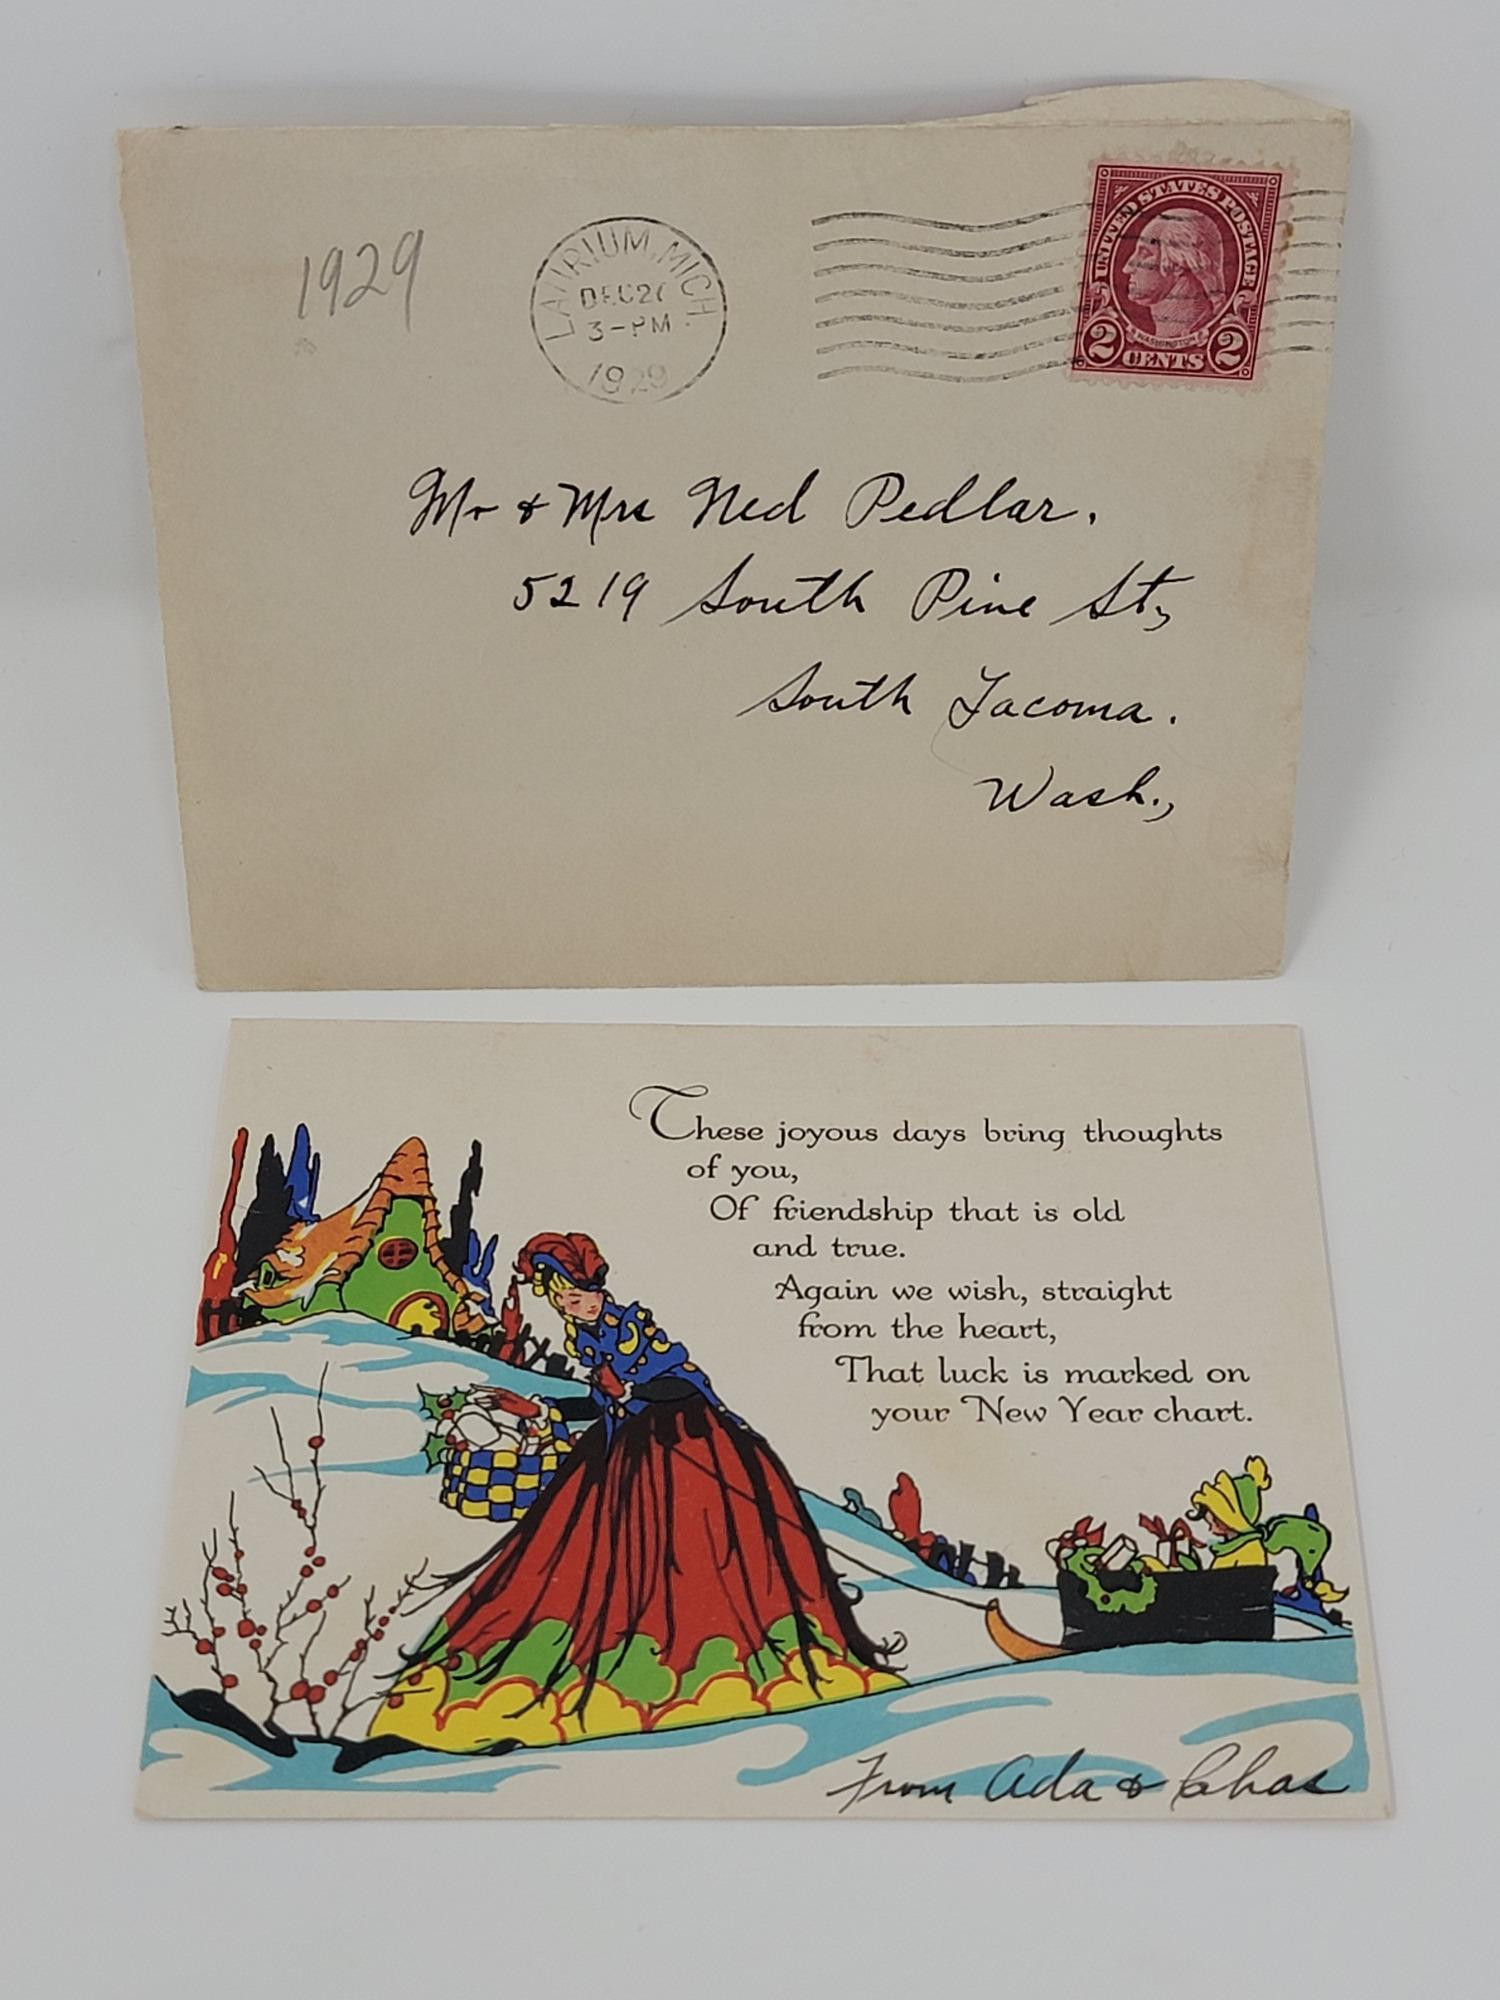 1929
LAURIUM, MICH.
DEC 27
3-PM
1929
UNITED STATES POSTAGE
WASHINGTON
2 CENTS 2
Mr & Mrs Ned Pedlar.
5219 South Pine St,
South Tacoma.
Wash.,
These joyous days bring thoughts
of you,
Of friendship that is old
and true.
Again we wish, straight
from the heart,
That luck is marked on
your New Year chart.
From Ada & Chas